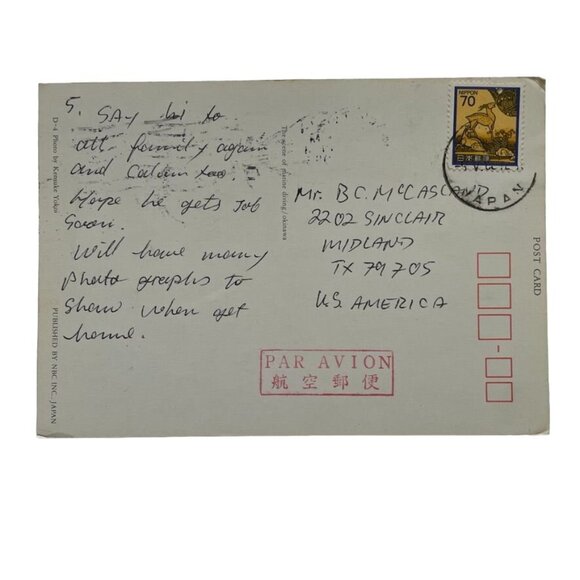 5. SAy hi to
all family again
and Calvin too.
Hope he gets Job
Soon.
Will have many
photo graphs to
Show when get
home.
D-4 Photo by Kosuke Yokoi
PUBLISHED BY NBC INC., JAPAN
The scene of marine diving/okinawa
NIPPON
70
日本郵便
JAPAN
Mr. B C. McCASLAND
2202 SINCLAIR
MIDLAND
TX 79705
U.S. AMERICA
POST CARD
PAR AVION
航空郵便